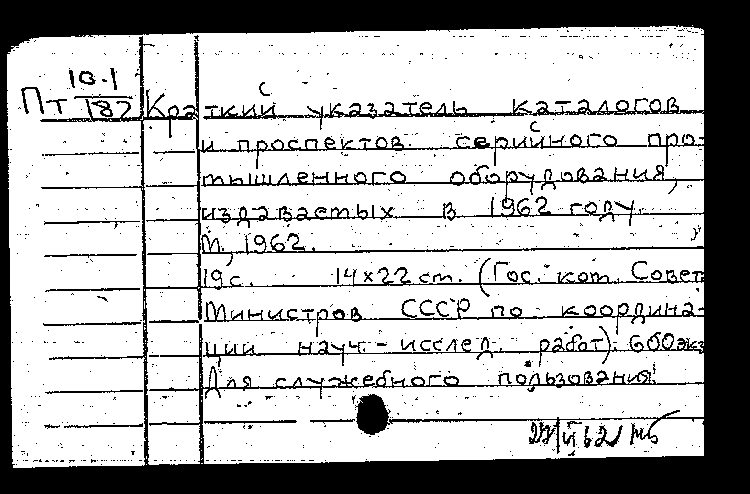 10.1
Пт 187 Краткий указатель каталогов
и проспектов серийного про-
мышленного оборудования,
издаваемых в 1962 году.
М., 1962.
19 с. 14×22 см. (Гос. ком. Совета
Министров СССР по координа-
ции науч.-исслед. работ). 600 экз
Для служебного пользования.